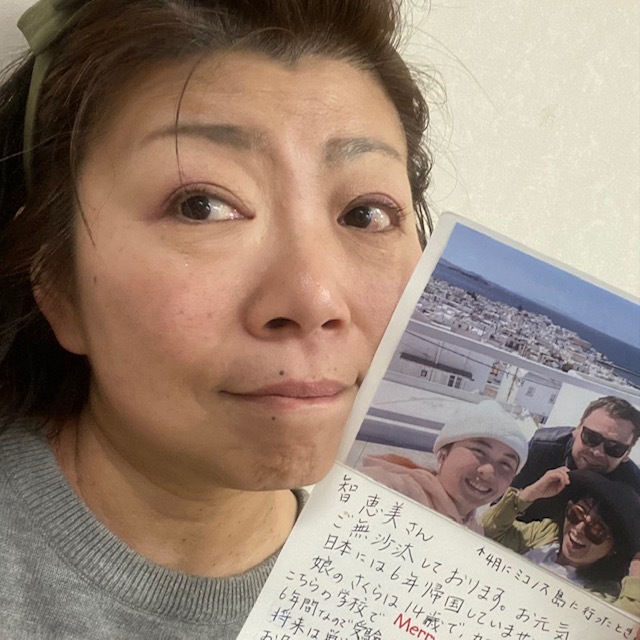 ↑4月にミコノス島に行ったとき
智恵美さん
ご無沙汰しております。お元
日本には6年帰国していません
娘のさくらは14歳で
こちらの学校で Merr
6年間なので受験
将来は